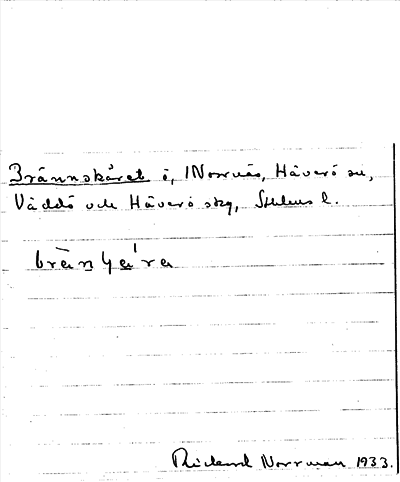 Brännskäret ö, Norrnäs, Häverö sn,
Väddö och Häverö skg, Sthlms l.
brä̀nʃä́ra
Rickard Norrman 1933.